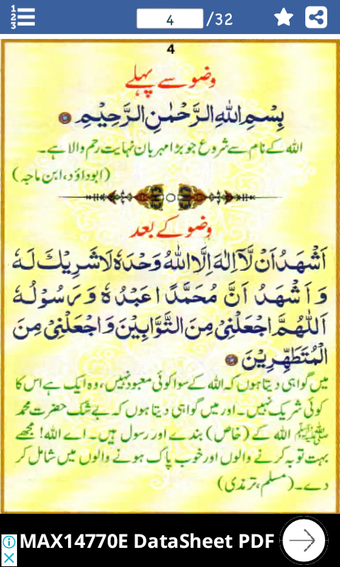 4 /32
4
وضو سے پہلے
بِسْمِ اللهِ الرَّحْمٰنِ الرَّحِيْمِ
اللہ کے نام سے شروع جو بڑا مہربان نہایت رحم والا ہے۔
(ابوداؤد، ابن ماجہ)
وضو کے بعد
اَشْهَدُ اَنْ لَّآ اِلٰهَ اِلَّا اللهُ وَحْدَهٗ لَا شَرِيْكَ لَهٗ
وَ اَشْهَدُ اَنَّ مُحَمَّدًا عَبْدُهٗ وَ رَسُوْلُهٗ
اَللّٰهُمَّ اجْعَلْنِىْ مِنَ التَّوَّابِيْنَ وَ اجْعَلْنِىْ مِنَ
الْمُتَطَهِّرِيْنَ
میں گواہی دیتا ہوں کہ اللہ کے سوا کوئی معبود نہیں، وہ ایک ہے اس کا
کوئی شریک نہیں۔ اور میں گواہی دیتا ہوں کہ بے شک حضرت محمد
ﷺ اللہ کے (خاص) بندے اور رسول ہیں۔ اے اللہ! مجھے
بہت توبہ کرنے والوں اور خوب پاک ہونے والوں میں شامل کر
دے۔ (مسلم، ترمذی)
MAX14770E DataSheet PDF